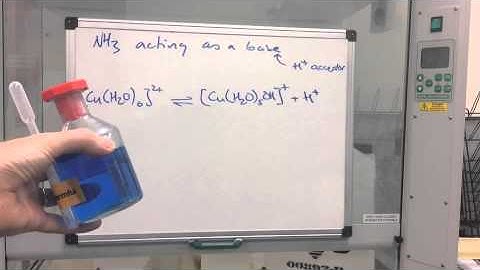 NH3 acting as a base
H+ acceptor
Cu(H2O)6]2+ ⇌ [Cu(H2O)5OH]+ + H+